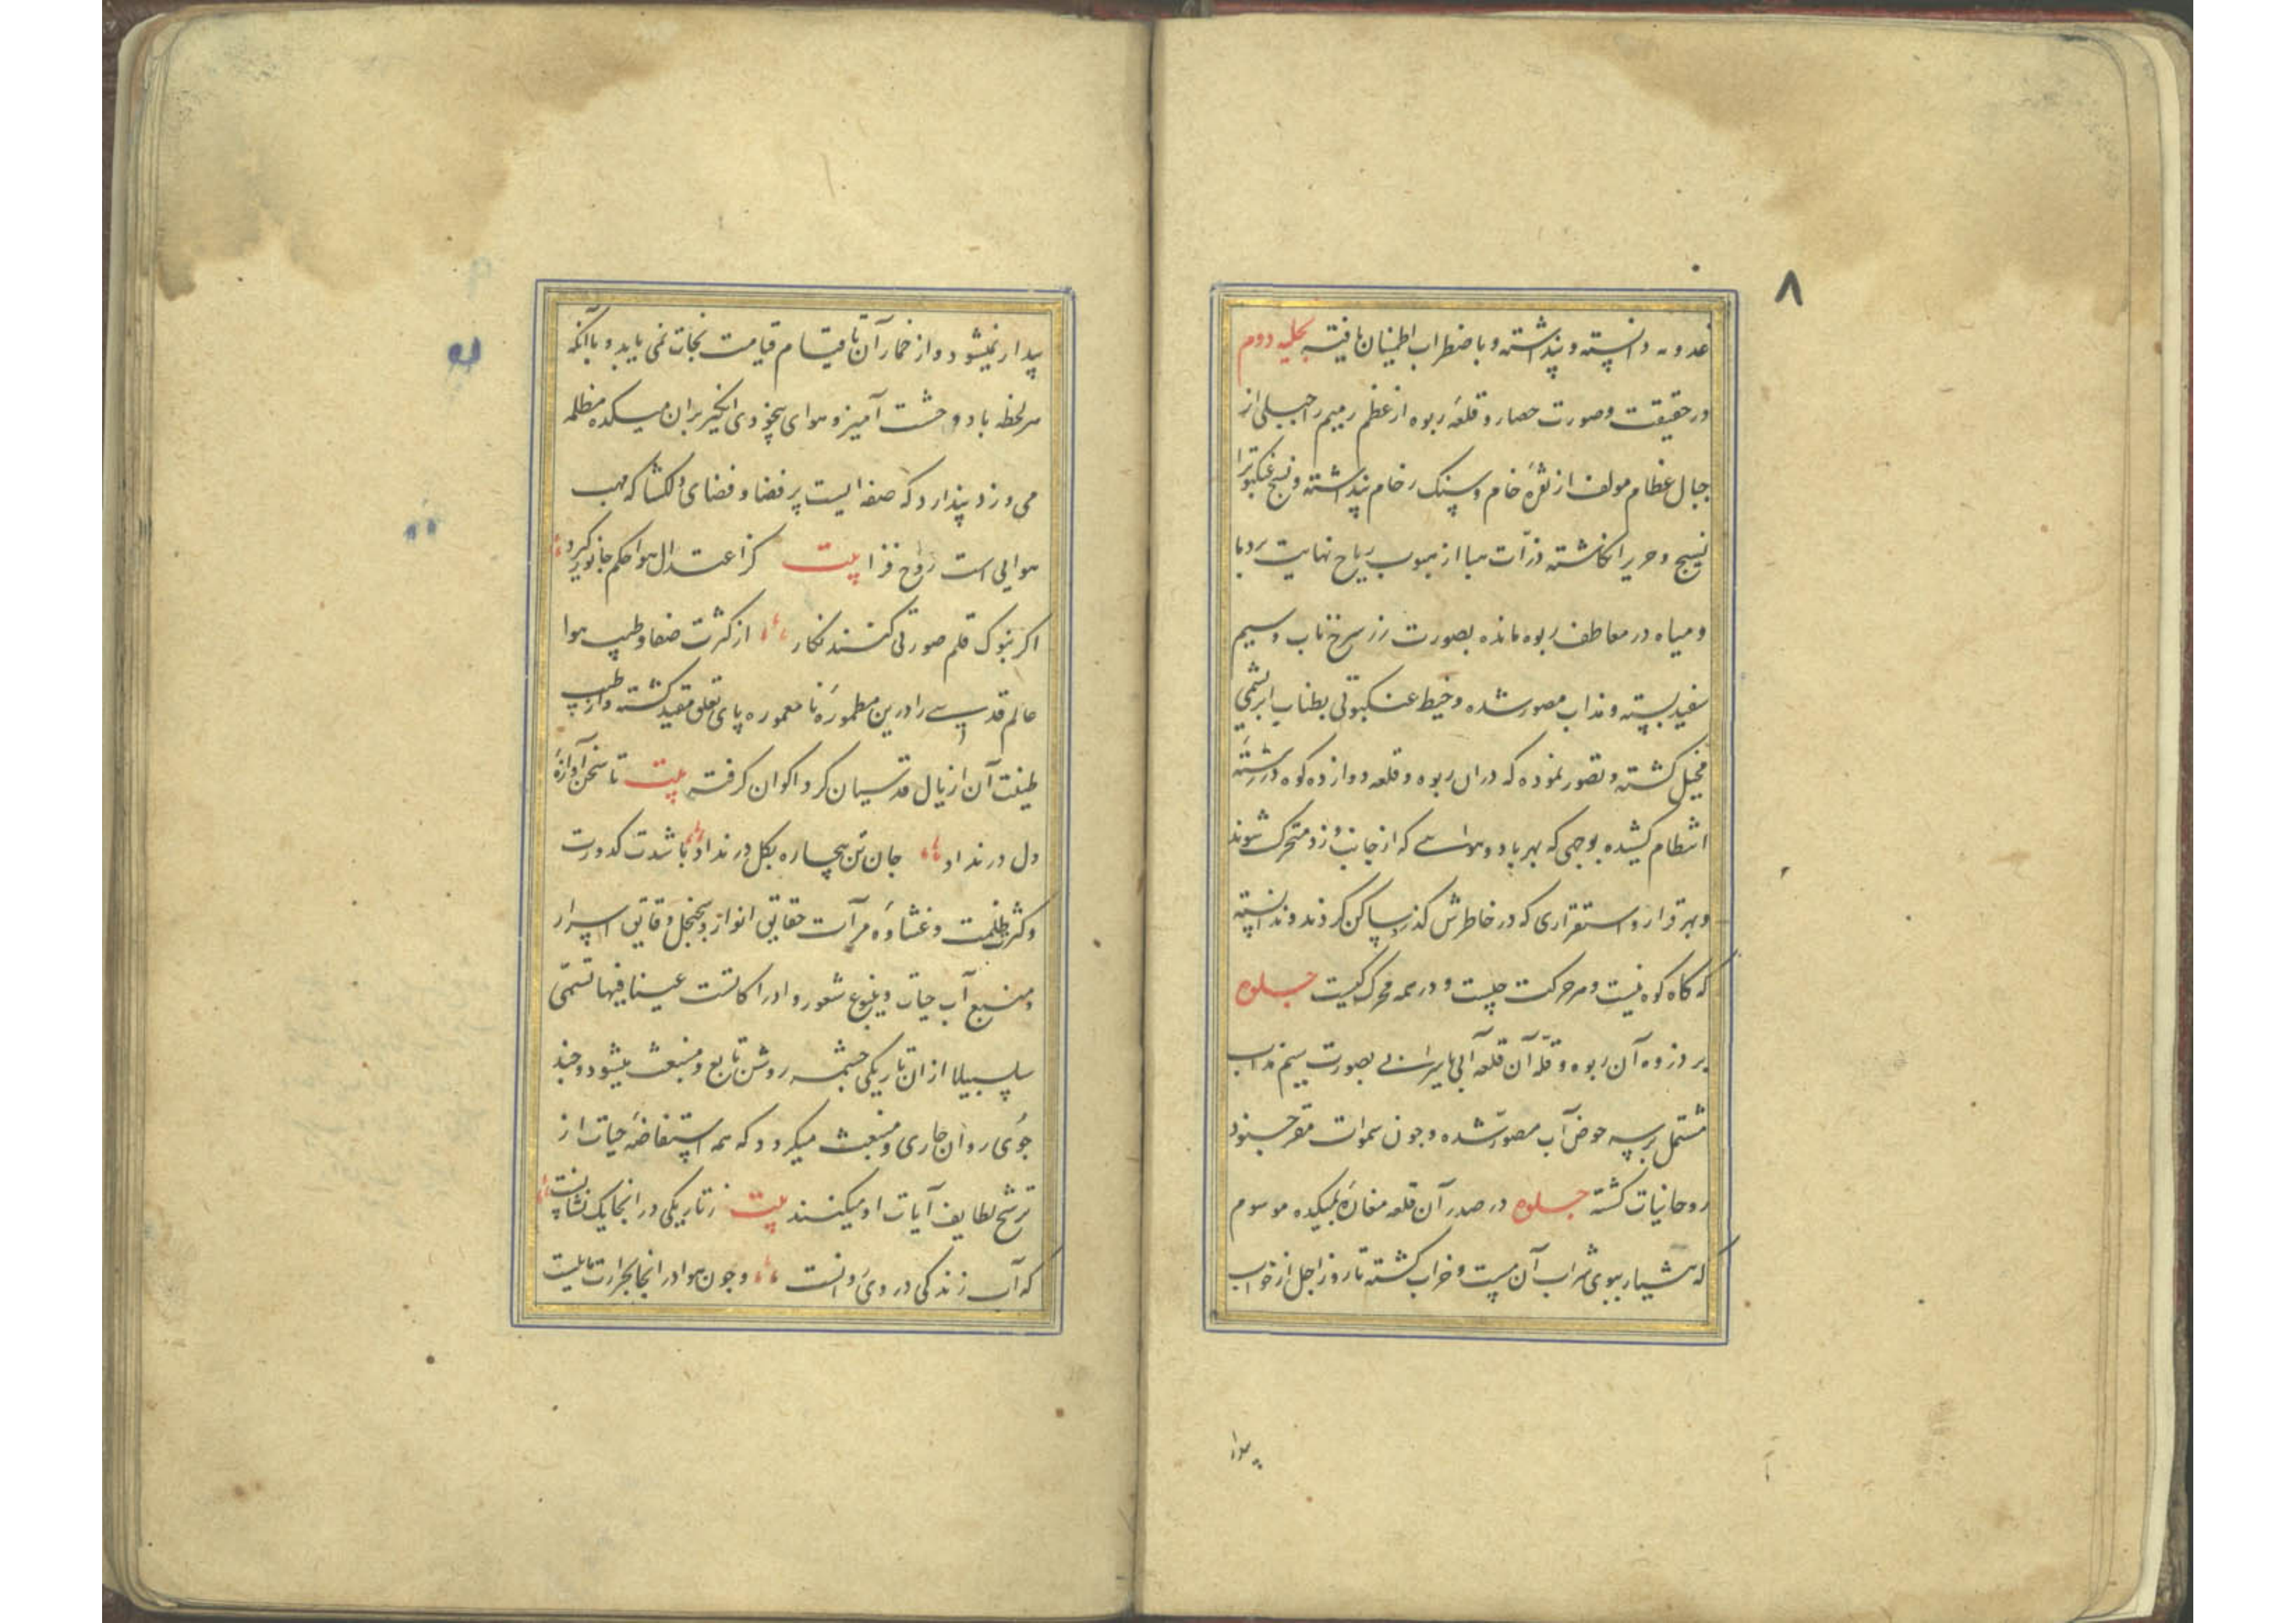 ۸
دانسته و پنداشته و باضطراب اطمینان یافته تجلیه دوم
در حقیقت و صورت حصار و قلعه ربوه از عظم رمیم را جبلی از
جبال عظام مولف از نقرهٔ خام و سنک رخام پنداشته و نسج عنکبوترا
نسیج و حریر انکاشته ذرّات هبا از هبوب ریاح نهایت بردها
و میاه در معاطف ربوه مانده بصورت زر سرخ ناب و سیم
سفید بسته و مذاب مصور شده و خیط عنکبوتی بطناب ابریشمی
مخیل کشته و تصور نموده که دران ربوه و قلعه دوازده کوه در رشتهٔ
انتظام کشیده بوجهی که بهر باد و هوایی که از جانب وزد متحرک شوند
و بهر قرار و استقراری که در خاطرش کذرد ساکن کردند و ندانسته
که کاه کوه نیست و محرکت چیست و در همه محرک کیست جلوه
بر ذروه آن ربوه و قلّه آن قلعه آبی بصورت سیم مذاب
مشتمل بر سه حوض آب مصور شده و چون سموات مقر جنود
روحانیات کشته جلوه در صدر آن قلعه مغازهٔ بمیکده موسوم
که هشیار ببوی شراب آن مست و خراب کشته تا روز اجل از خواب
بیدار نمیشود و از خمار آن تا قیام قیامت نجات نمی یابد و باآنکه
هر لحظه باد وحشت آمیز و هوای بیخودی انکیز بران میکده مظلمه
می وزد پندارد که صفه ایست پر فضا و فضای دلکشا که مهب
هوایی است روح فزا بیت کز اعتدال هوا حکم جانور کیرد
اکر بنوک قلم صورتی کنند نکار از کثرت صفا و طیب هوا
عالم قدسی را درین مطمورهٔ نا معموره پای تعلق مقید کشته و از طیب
طینت آن اذیال قدسیان کرد اکوان کرفته بیت تا سخن آوازهٔ
دل در نداد جان تن بیچاره بکل در نداد با شدت کدورت
و کثرت ظلمت و غشاوهٔ مرآت حقایق انوار و سجنجل دقایق اسرار
و منبع آب حیات و ینبوع شعور و ادراکاتست عینا فیها تسمّی
سلسبیلا از ان تاریکی چشمه روشن تابع و منبعث میشود و چند
جوی روان جاری و منبعث میکردد که همه استفاضهٔ حیات از
ترشح لطایف آیات او میکنند بیت ز تاریکی در انجا یک نشانست
که آب زندکی در وی روانست و چون هوا در انجا بحرارت مایلیت